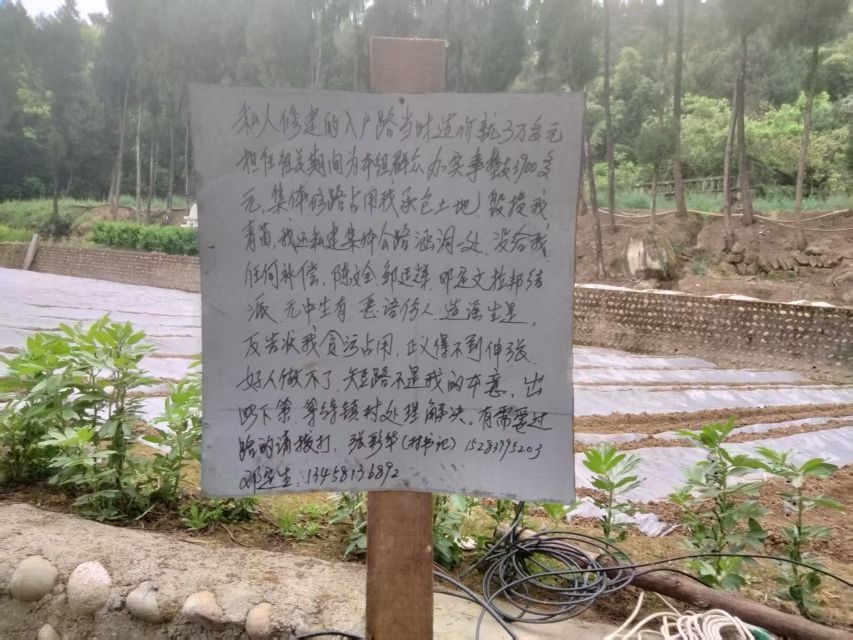 私人修建的入户路当时造价就3万多元
担任组长期间为本组群众办实事垫支3900多
元，集体修路占用我承包土地，毁损我
青苗，我还私建集体公路涵洞一处，没给我
任何补偿，陈文全，邹廷辉，邓定文拉邦结
派，无中生有，恶语伤人，造谣生是，
反告状我贪污占用，正义得不到伸张，
好人做不了，短路不是我的本意，出
此下策，等待镇村处理解决。有需要过
路的请拨打，张彩华(村书记)15283795203
邓定生，13458136892